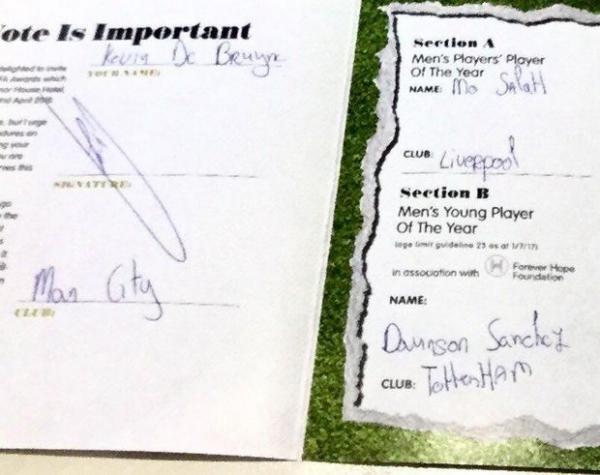 ote Is Important
Kevin De Bruyne
YOUR NAME:
delighted to invite
FA Awards which
nor House Hotel,
nd April 2018
SIGNATURE:
Man City
CLUB:
Section A
Men's Players' Player
Of The Year
NAME: Mo SalaH
CLUB: Liverpool
Section B
Men's Young Player
Of The Year
(age limit guideline 23 as at 1/7/17)
in association with Forever Hope
Foundation
NAME:
Davinson Sanchez
CLUB: TottenHAM